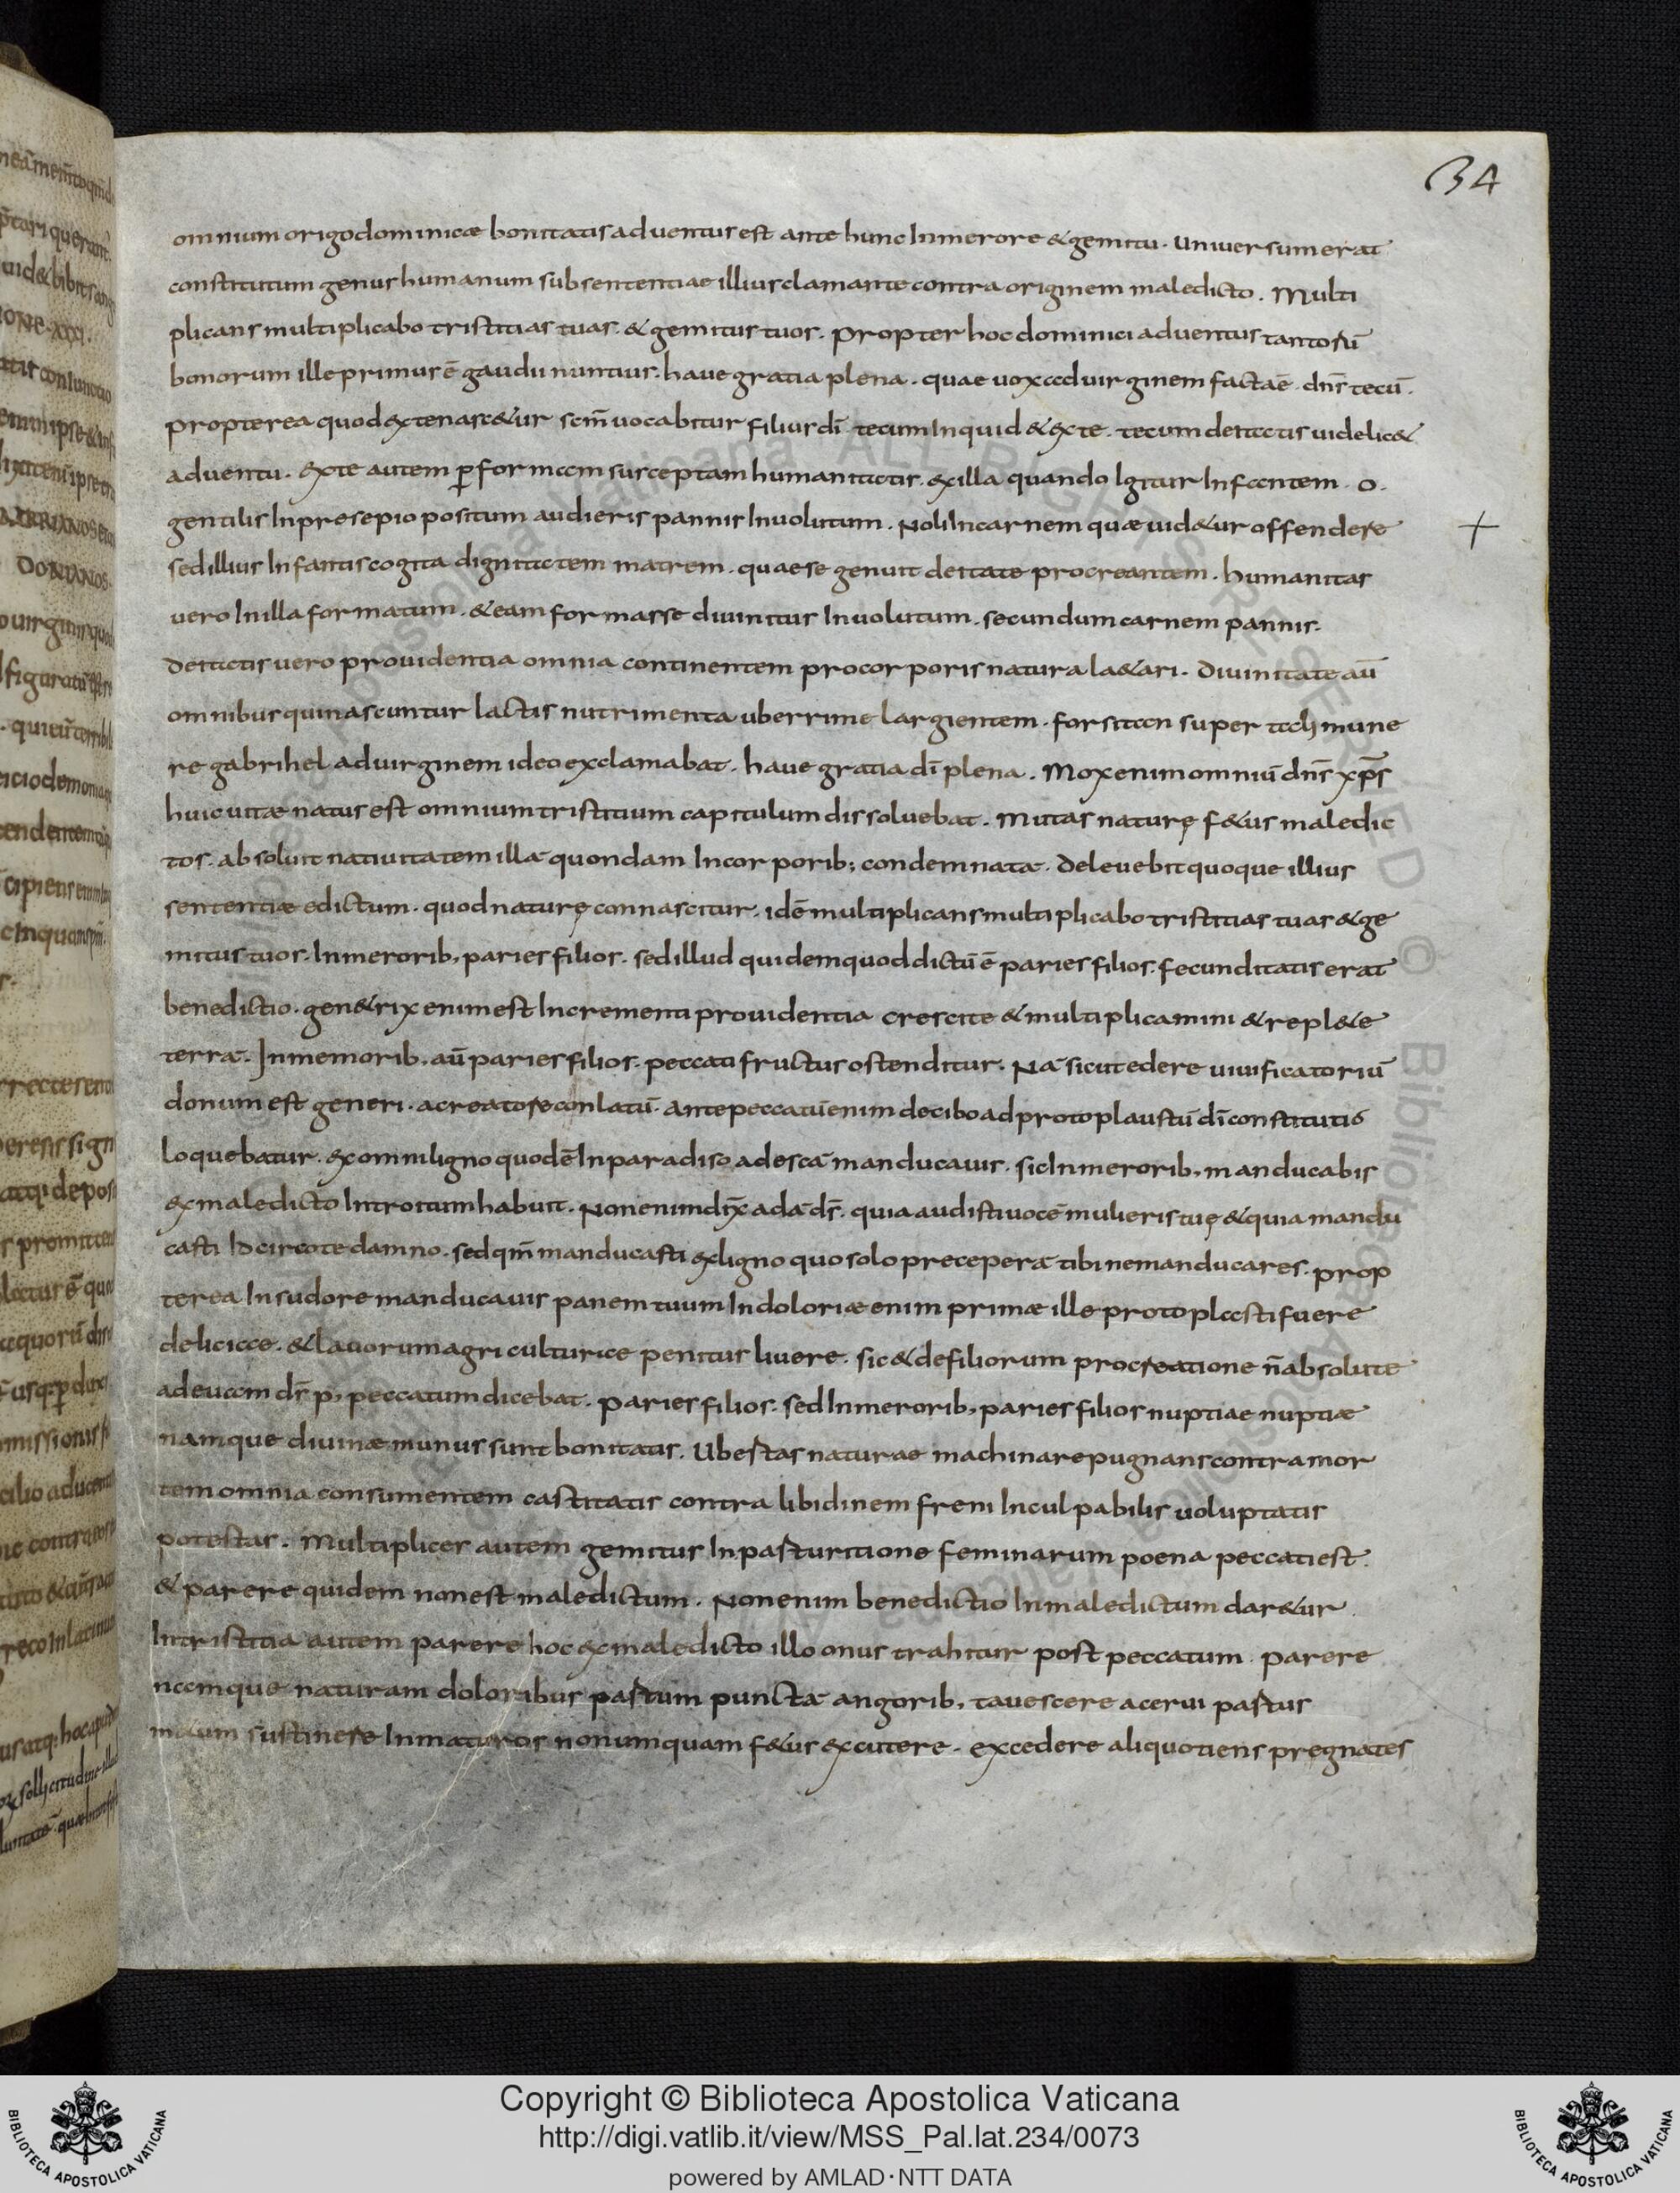 34
omnium origo dominicæ bonitatis aduentus est ante hunc Inmerore & gemitu. uniuersum erat
constitutum genus humanum sub sententiae illius clamante contra originem maledicto. Multi
plicans multiplicabo tristitias tuas. & gemitus tuos. propter hoc dominici aduentus tantorū
bonorum ille primus ē gaudii nuntius. haue gratia plena. quae uox ad uirginem facta ē. dn̄s tecū.
propterea quod ex te nasc&ur scm̄ uocabitur filius dī tecum Inquid & ex te. tecum deitatis uidelic&
aduentu. Ex te autem p̱ formam susceptam humanitatis. ex illa quando Igitur Infantem. o.
gentilis Inpresepio positum audieris pannis Inuolutum. Noli Incarnem quæ uid&ur offendere +
sed illius Infantis cogita dignitatem matrem. quae se genuit deitate procreantem. humanitas
uero In illa formatum. & eam formasse diuinitus Inuolutum. secundum carnem pannis.
deitatis uero prouidentia omnia continentem pro corporis natura la&ari. Diuinitate aū
omnibus qui nascuntur lactis nutrimenta uberrime largientem. forsitan super tali mune
re gabrihel ad uirginem ideo exclamabat. haue gratia dī plena. Mox enim omniū dn̄s xp̄s
huic uitæ natus est omnium tristitium capitulum dissoluebat. Mitas naturę f&us maledic
tos. absoluit natiuitatem illā quondam Incorporib; condemnatā. Deleuebit quoque illius
sententiæ edictum. quod naturę connascitur. idē multiplicans multiplicabo tristitias tuas & ge
mitus tuos. Inmerorib, paries filios. sed illud quidem quod dictū ē paries filios. fecunditatis erat
benedictio. gen&rix enim est Incrementi prouidentia crescite & multiplicamini & repl&e
terrā. Inmemorib, aū paries filios. peccati fructus ostenditur. Nā sicut edere uiuificatoriū
donum est generi. a creatore conlatū. ante peccatū enim de cibo ad protoplaustū dī constitutio
loquebatur. ex omni ligno quod ē In paradiso ad escā manducauis. sic Inmerorib, manducabis
ex maledicto Introitum habuit. Non enim dix̄ adā ds̄. quia audisti uocē mulieris tuę & quia mandu
casti Idcirco te damno. sed qm̄ manducasti ex ligno quo solo preceperā tibi ne manducares. prop
terea In sudore manducauis panem tuum In doloriæ enim primæ ille protoplasti fuere
deliciae. & lauorum agri culturiae penitus liuere. sic & de filiorum procreatione n̄ absolute
ad euam ds̄ p, peccatum dicebat. paries filios. sed Inmerorib, paries filios nuptiae nuptiæ
namque diuinæ munus sunt bonitatis. Ubestas naturae machina repugnans contra mor
tem omnia consumentem castitatis contra libidinem freni Inculpabilis uoluptatis
potestas. Multiplices autem gemitus Inpasturitione feminarum poena peccati est.
& parere quidem non est maledictum. Non enim benedictio Inmaledictum dar&ur.
In tristitia autem parere hoc ex maledicto illo onus trahitur post peccatum. parere
namque naturam doloribus pastum punctā angorib, tauescere acerui pastus
m&um sustinere Inmaturos nonumquam f&us excutere. excedere aliquotiens pregnates
Copyright © Biblioteca Apostolica Vaticana
http://digi.vatlib.it/view/MSS_Pal.lat.234/0073
powered by AMLAD·NTT DATA
BIBLIOTECA APOSTOLICA VATICANA
BIBLIOTECA APOSTOLICA VATICANA